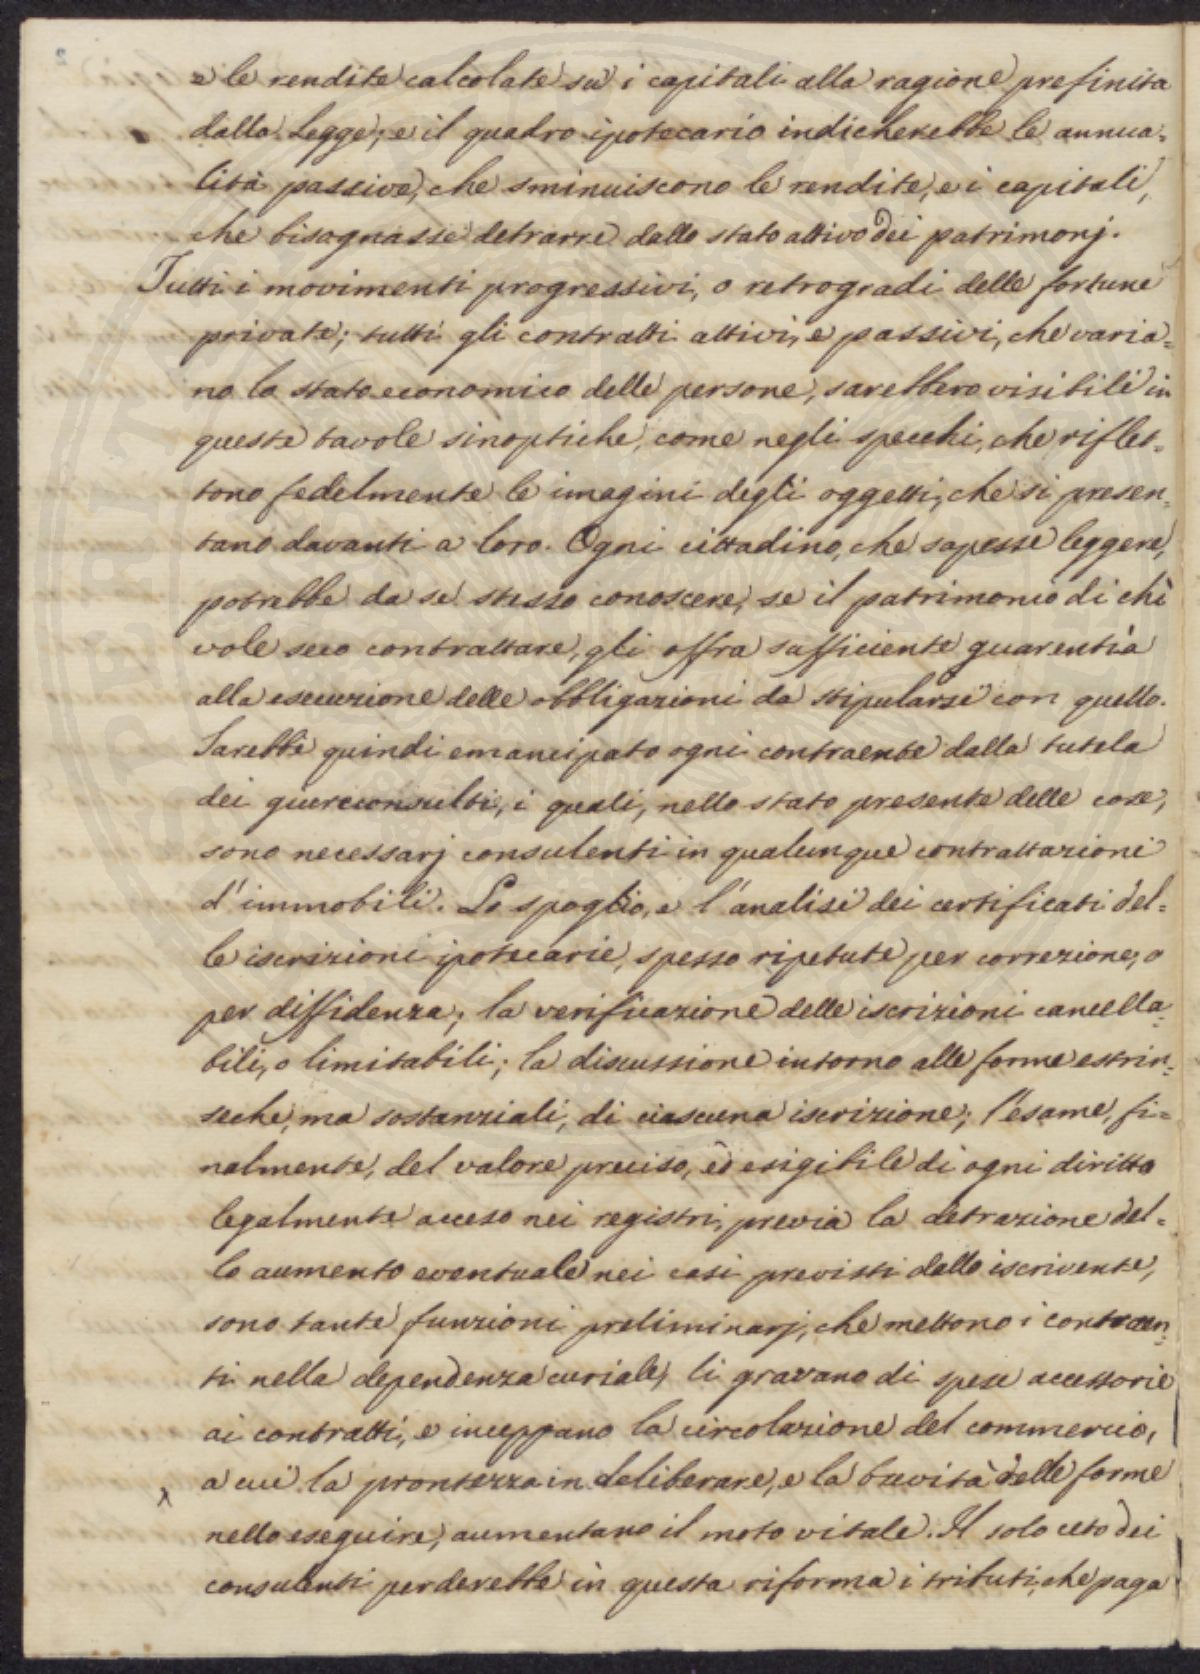 e le rendite calcolate su i capitali alla ragione prefinita
dalla Legge; e il quadro ipotecario indicherebbe le annua=
lità passive, che sminuiscono le rendite, e i capitali,
che bisognasse detrarre dallo stato attivo dei patrimonj.
Tutti i movimenti progressivi, o retrogradi delle fortune
private; tutti gli contratti attivi, e passivi, che varia=
no lo stato economico delle persone, sarebbero visibili in
queste tavole sinoptiche, come negli specchi, che riflet=
tono fedelmente le imagini degli oggetti, che si presen=
tano davanti a loro. Ogni cittadino, che sapesse leggere,
potrebbe da se stesso conoscere, se il patrimonio di chi
vole seco contrattare, gli offra sufficiente guarentia
alla esecuzione delle obbligazioni da stipularsi con quello.
Sarebbe quindi emancipato ogni contraente dalla tutela
dei giureconsulti, i quali, nello stato presente delle cose,
sono necessarj consulenti in qualunque contrattazione
d'immobili. Lo spoglio, e l'analisi dei certificati del=
le iscrizioni ipotecarie, spesso ripetute per correzione, o
per diffidenza; la verificazione delle iscrizioni cancella=
bili, o limitabili; la discussione intorno alle forme estrin=
seche, ma sostanziali, di ciascuna iscrizione; l'esame, fi=
nalmente, del valore preciso, ed esigibile di ogni diritto
legalmente acceso nei registri, previa la detrazione del=
lo aumento eventuale nei casi previsti dallo iscrivente,
sono tante funzioni preliminarj, che mettono i contraen=
ti nella dependenza curiale, li gravano di spese accessorie
ai contratti, e inceppano la circolazione del commercio,
a cui la prontezza in deliberare, e la brevità delle forme
nello eseguire, aumentano il moto vitale. Il solo ceto dei
consulenti perderebbe in questa riforma i tributi, che paga